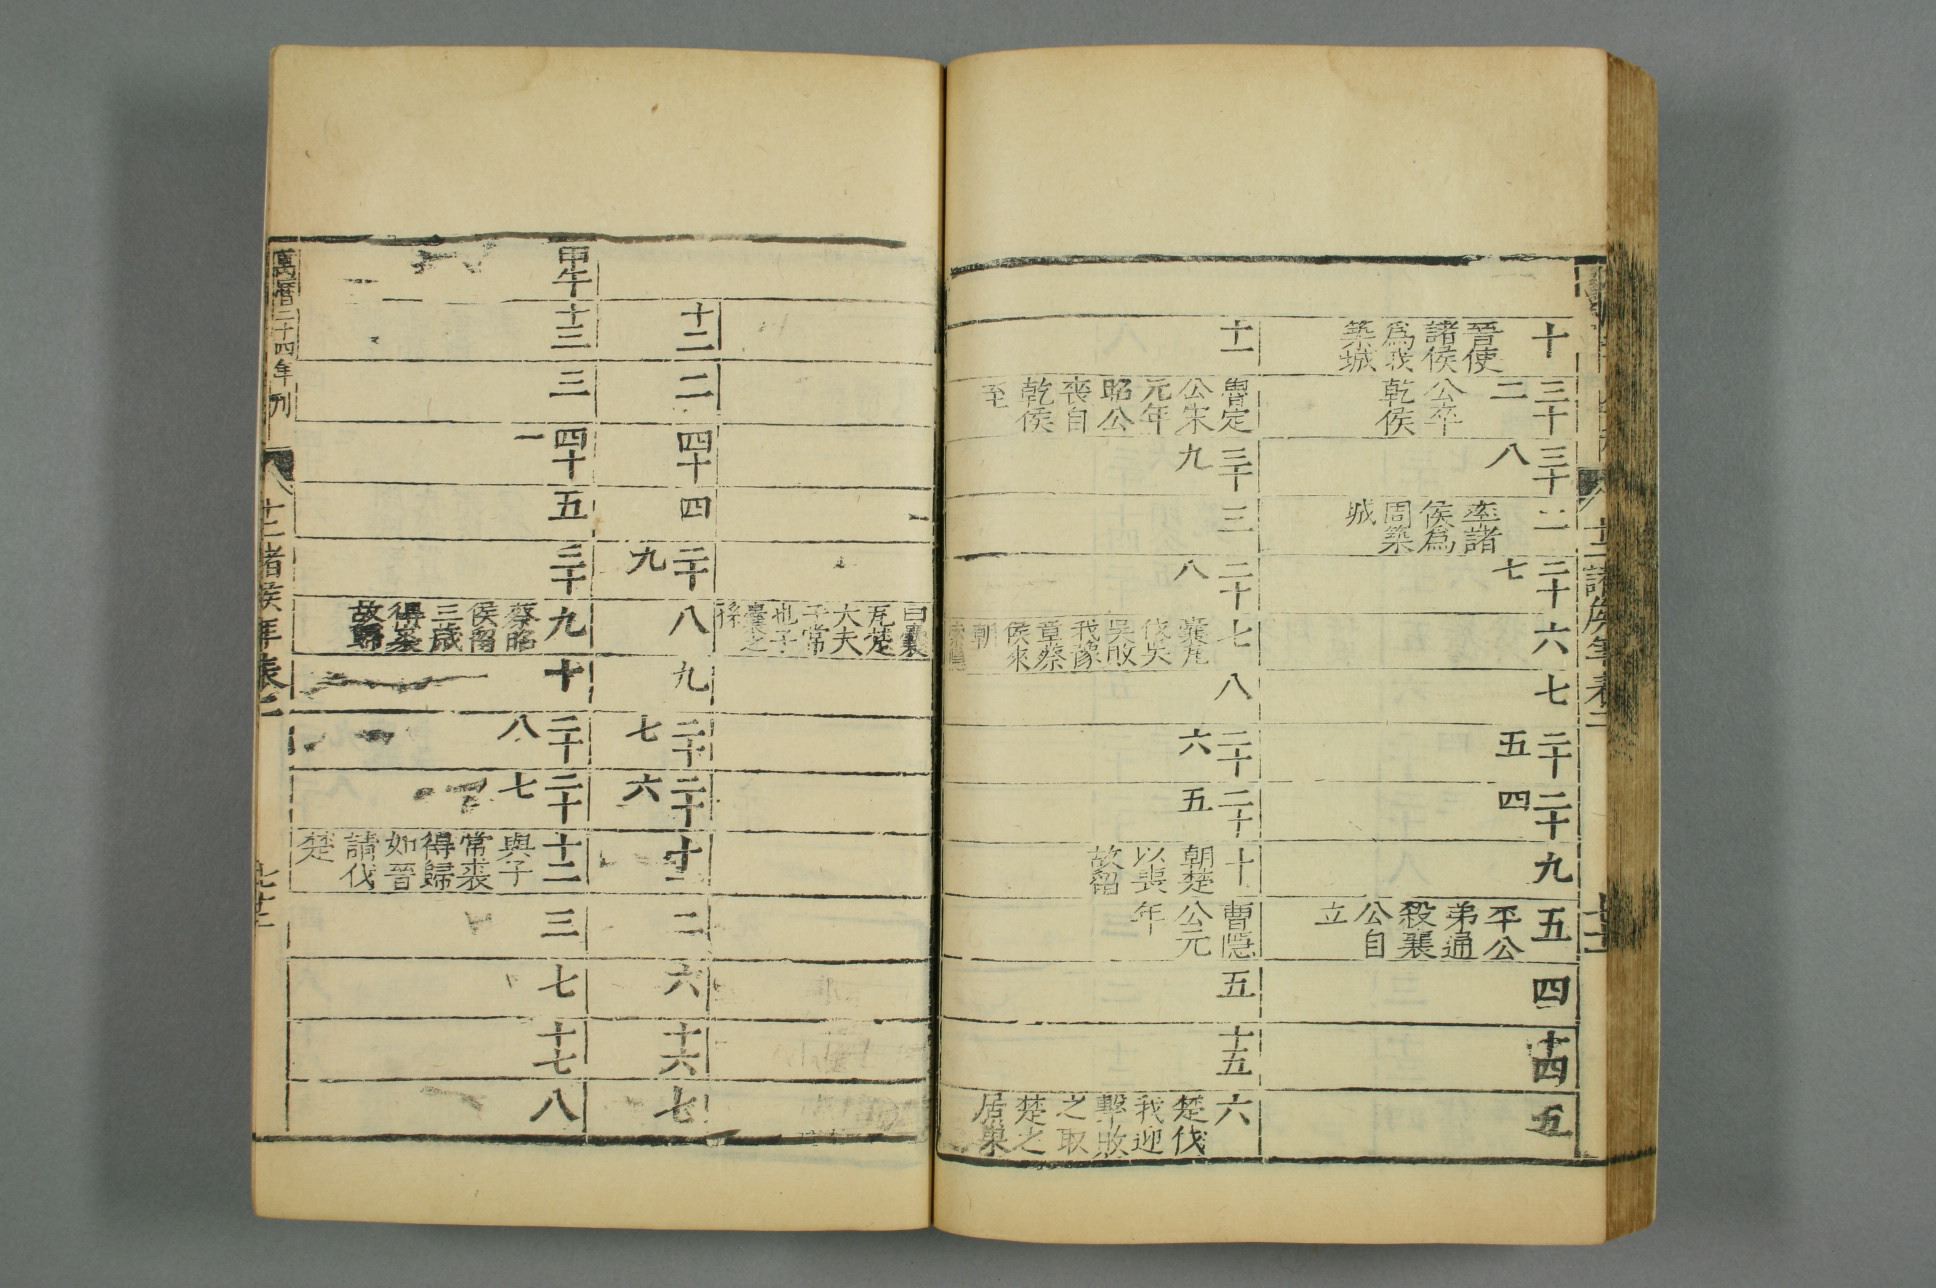 十二諸侯年表二
十
晉使
諸侯
爲我
築城
三十
二
公卒
乾侯
三十
八
二
率諸
侯爲
周築
城
二十
七
六
七
二十
五
二十
四
九
五
平公
弟通
殺襄
公自
立
四
十四
五
十一
魯定
公宋
元年
昭公
喪自
乾侯
至
三十
九
三
二十
八
七
囊瓦
伐吳
吳敗
我豫
章蔡
侯來
朝
索隱
八
二十
六
二十
五
十
朝楚
以喪
故留
曹隱
公元
年
五
十五
六
楚伐
我迎
擊敗
之取
楚之
居巢
曰囊
瓦楚
大夫
子常
也子
囊之
孫
十二
二
四十
四
二十
九
八
九
二十
七
二十
六
十一
二
六
十六
七
甲午
十三
三
四十
一
五
三十
九
蔡昭
侯留
三歲
得裘
故歸
十
二十
八
二十
七
十二
與子
常裘
得歸
如晉
請伐
楚
三
七
十七
八
萬曆二十四年刊
十二諸侯年表二